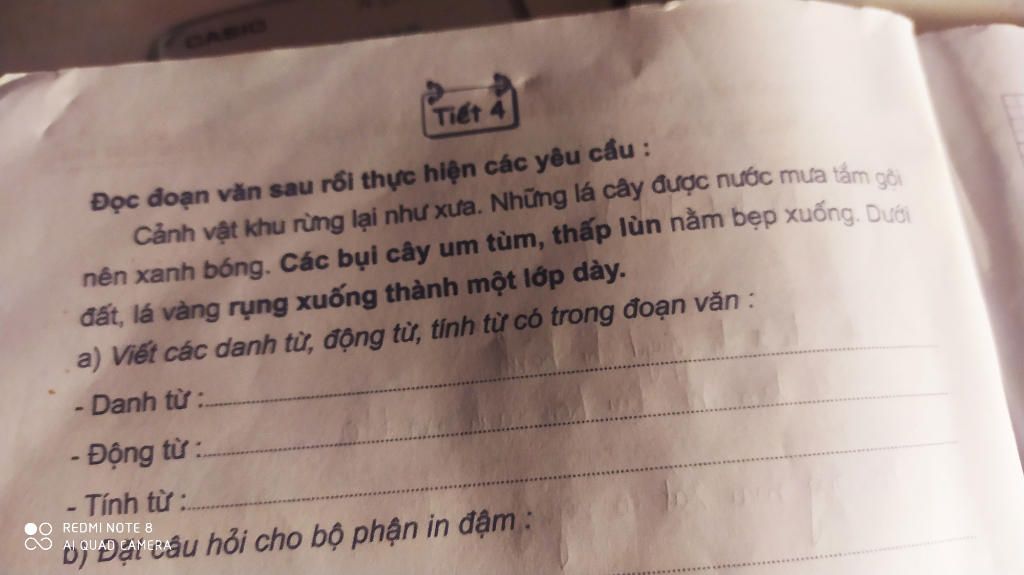 CASIO
Tiết 4
Đọc đoạn văn sau rồi thực hiện các yêu cầu :
Cảnh vật khu rừng lại như xưa. Những lá cây được nước mưa tắm gội
nên xanh bóng. Các bụi cây um tùm, thấp lùn nằm bẹp xuống. Dưới
đất, lá vàng rụng xuống thành một lớp dày.
a) Viết các danh từ, động từ, tính từ có trong đoạn văn :
- Danh từ :
- Động từ :
- Tính từ :
b) Đặt câu hỏi cho bộ phận in đậm :
REDMI NOTE 8
AI QUAD CAMERA